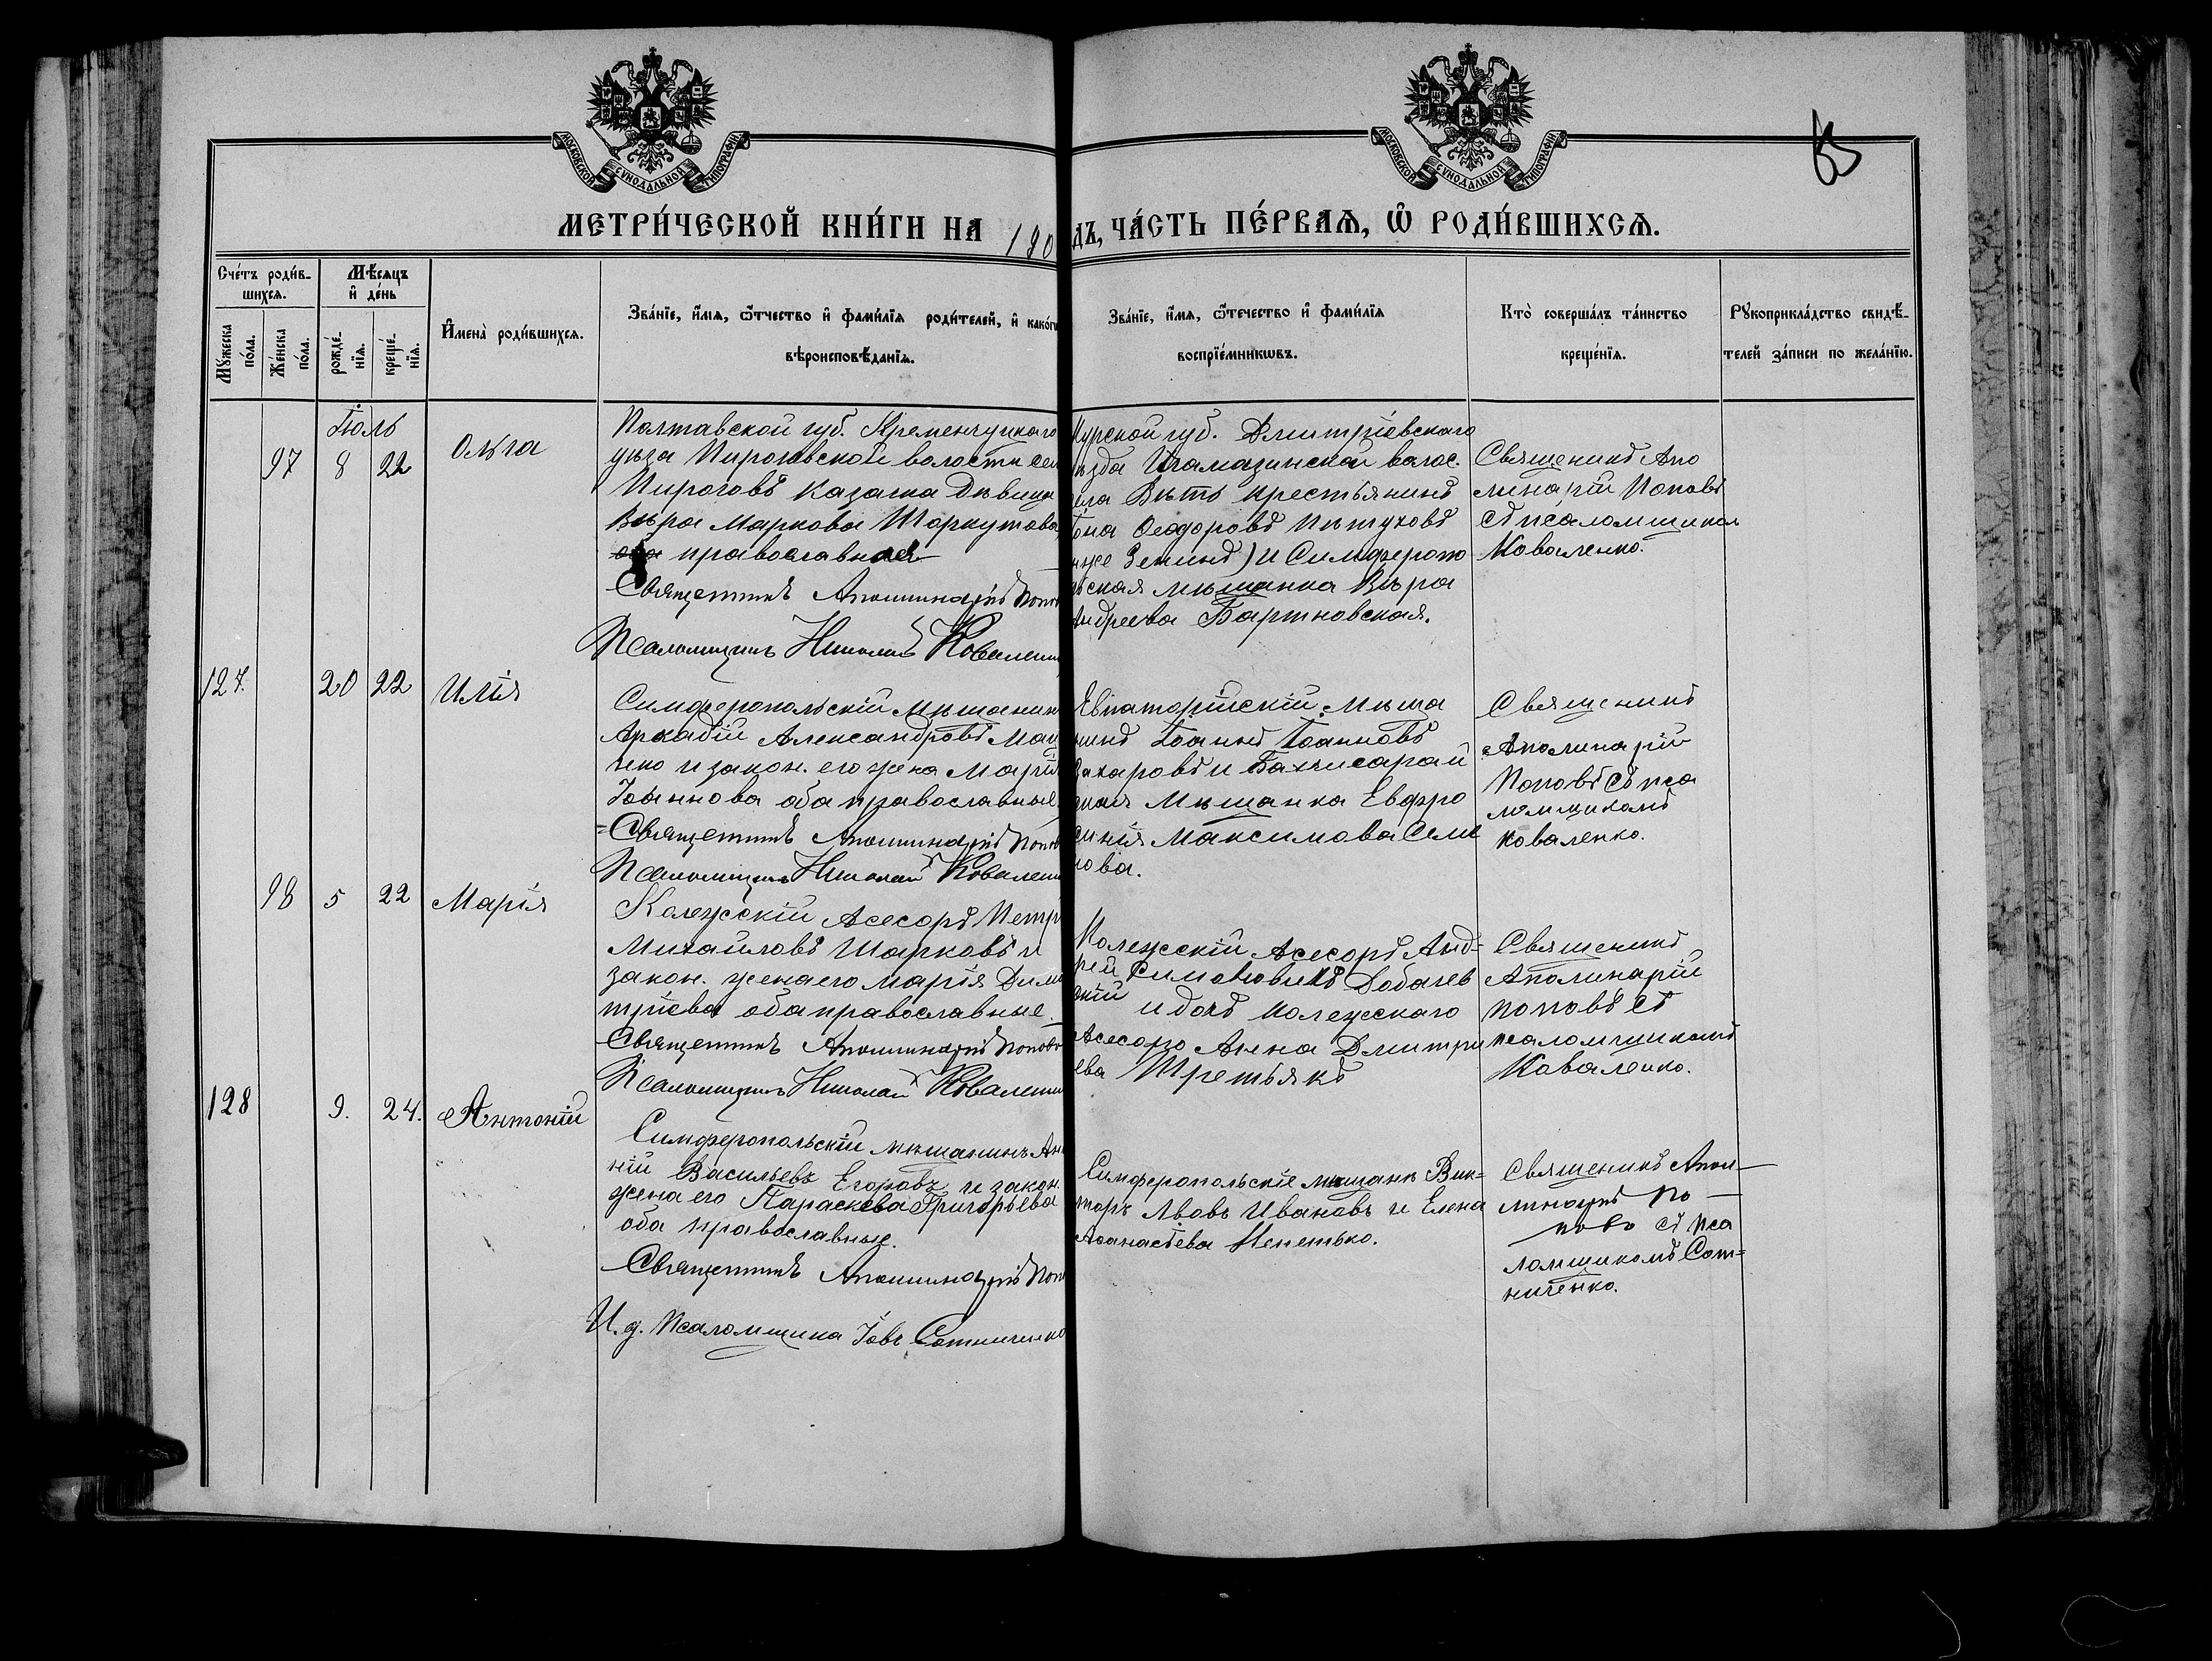 МОСКОВСКОЙ СѴНОДАЛЬНОЙ ТИПОГРАФІИ
МОСКОВСКОЙ СѴНОДАЛЬНОЙ ТИПОГРАФІИ
МЕТРИ́ЧЕСКОЙ КНИ́ГИ НА 190
ДЪ, ЧА́СТЬ ПЕ́РВАѦ, Ѿ РОДИ́ВШИХСѦ.
Сче́тъ роди́в-
шихсѧ.
Мꙋжеска по́ла.
Же́нска по́ла.
Мѣ́сѧцъ
и҆ де́нь
рожде́-
нїѧ.
креще́-
нїѧ.
И҆мена̀ роди́вшихсѧ.
Зва́нїе, и҆́мѧ, ѻ҆́тчество и҆ фами́лїѧ роди́телей, и҆ како́гѡ
вѣроисповѣ́данїѧ.
Зва́нїе, и҆́мѧ, ѻ҆́течество и҆ фами́лїѧ
воспрїе́мникѡвъ.
Кто̀ соверша́лъ та́инство
креще́нїѧ.
Рꙋкоприкла́дство свидѣ́-
телей за́писи по жела́нїю.
Іюль
97 8 22 Ольга
Полтавской губ. Кременчугскаго
уѣзда Пироговской волости сел
Пироговъ казачка дѣвица
Вѣра Маркова
православная
Священникъ Аполлинарій Попов
Псаломщикъ Николай Коваленк
Курской губ. Дмитріевскаго
ѣзда волос.
ела крестьянинъ
Ѳеодоровъ Пѣтуховъ
же Зенинъ) и Симферопо
ьская мѣщанка Вѣра
Андреева Бартновская.
Священикъ Апо
линарій Поповъ
съ псаломщиком
Коваленко.
127. 20 22 Илія
Симферопольскій мѣщанин
Аркадій Александровъ Мац
енко и закон. его жена Марія
Іоаннова оба православные
Священникъ Аполлинарій Попов
Псаломщикъ Николай Коваленк
Евпаторійскій мѣща
нинъ Іоаннъ Іоанновъ
Захаровъ и Бахчисарай
ская мѣщанка Евфро
синія Максимова Семе
нова.
Священикъ
Аполинарій
Поповъ съ пса
ломщикомъ
Коваленко.
98 5 22 Марія
Колежскій Асесоръ Петр
Михайловъ Шарковъ и
закон. жена его Марія Дими
тріева оба православные.
Священникъ Аполлинарій Попов
Псаломщикъ Николай Коваленк
Колежскій Асесоръ Анд-
рей Симоновичъ Добачев
скій и дочь колежскаго
Асесора Анна Дмитри
ева Третьякъ
Священикъ
Аполинарій
Поповъ съ
псаломщикомъ
Коваленко.
128 9. 24. Антоній
Симферопольскій мѣщанинъ Ан
ній Васильевъ Егоровъ и закон.
жена его Параскева Григорьева
оба православные.
Священникъ Аполлинарій Поп
И. д. Псаломщика Іовъ Сотниченко
Симферопольскіе мѣщане Вик-
торъ Львовъ Ивановъ и Елена
Аѳанасіева Непетько.
Священикъ Апол-
линарій По-
повъ съ пса
ломщикомъ Сот-
ниченко.